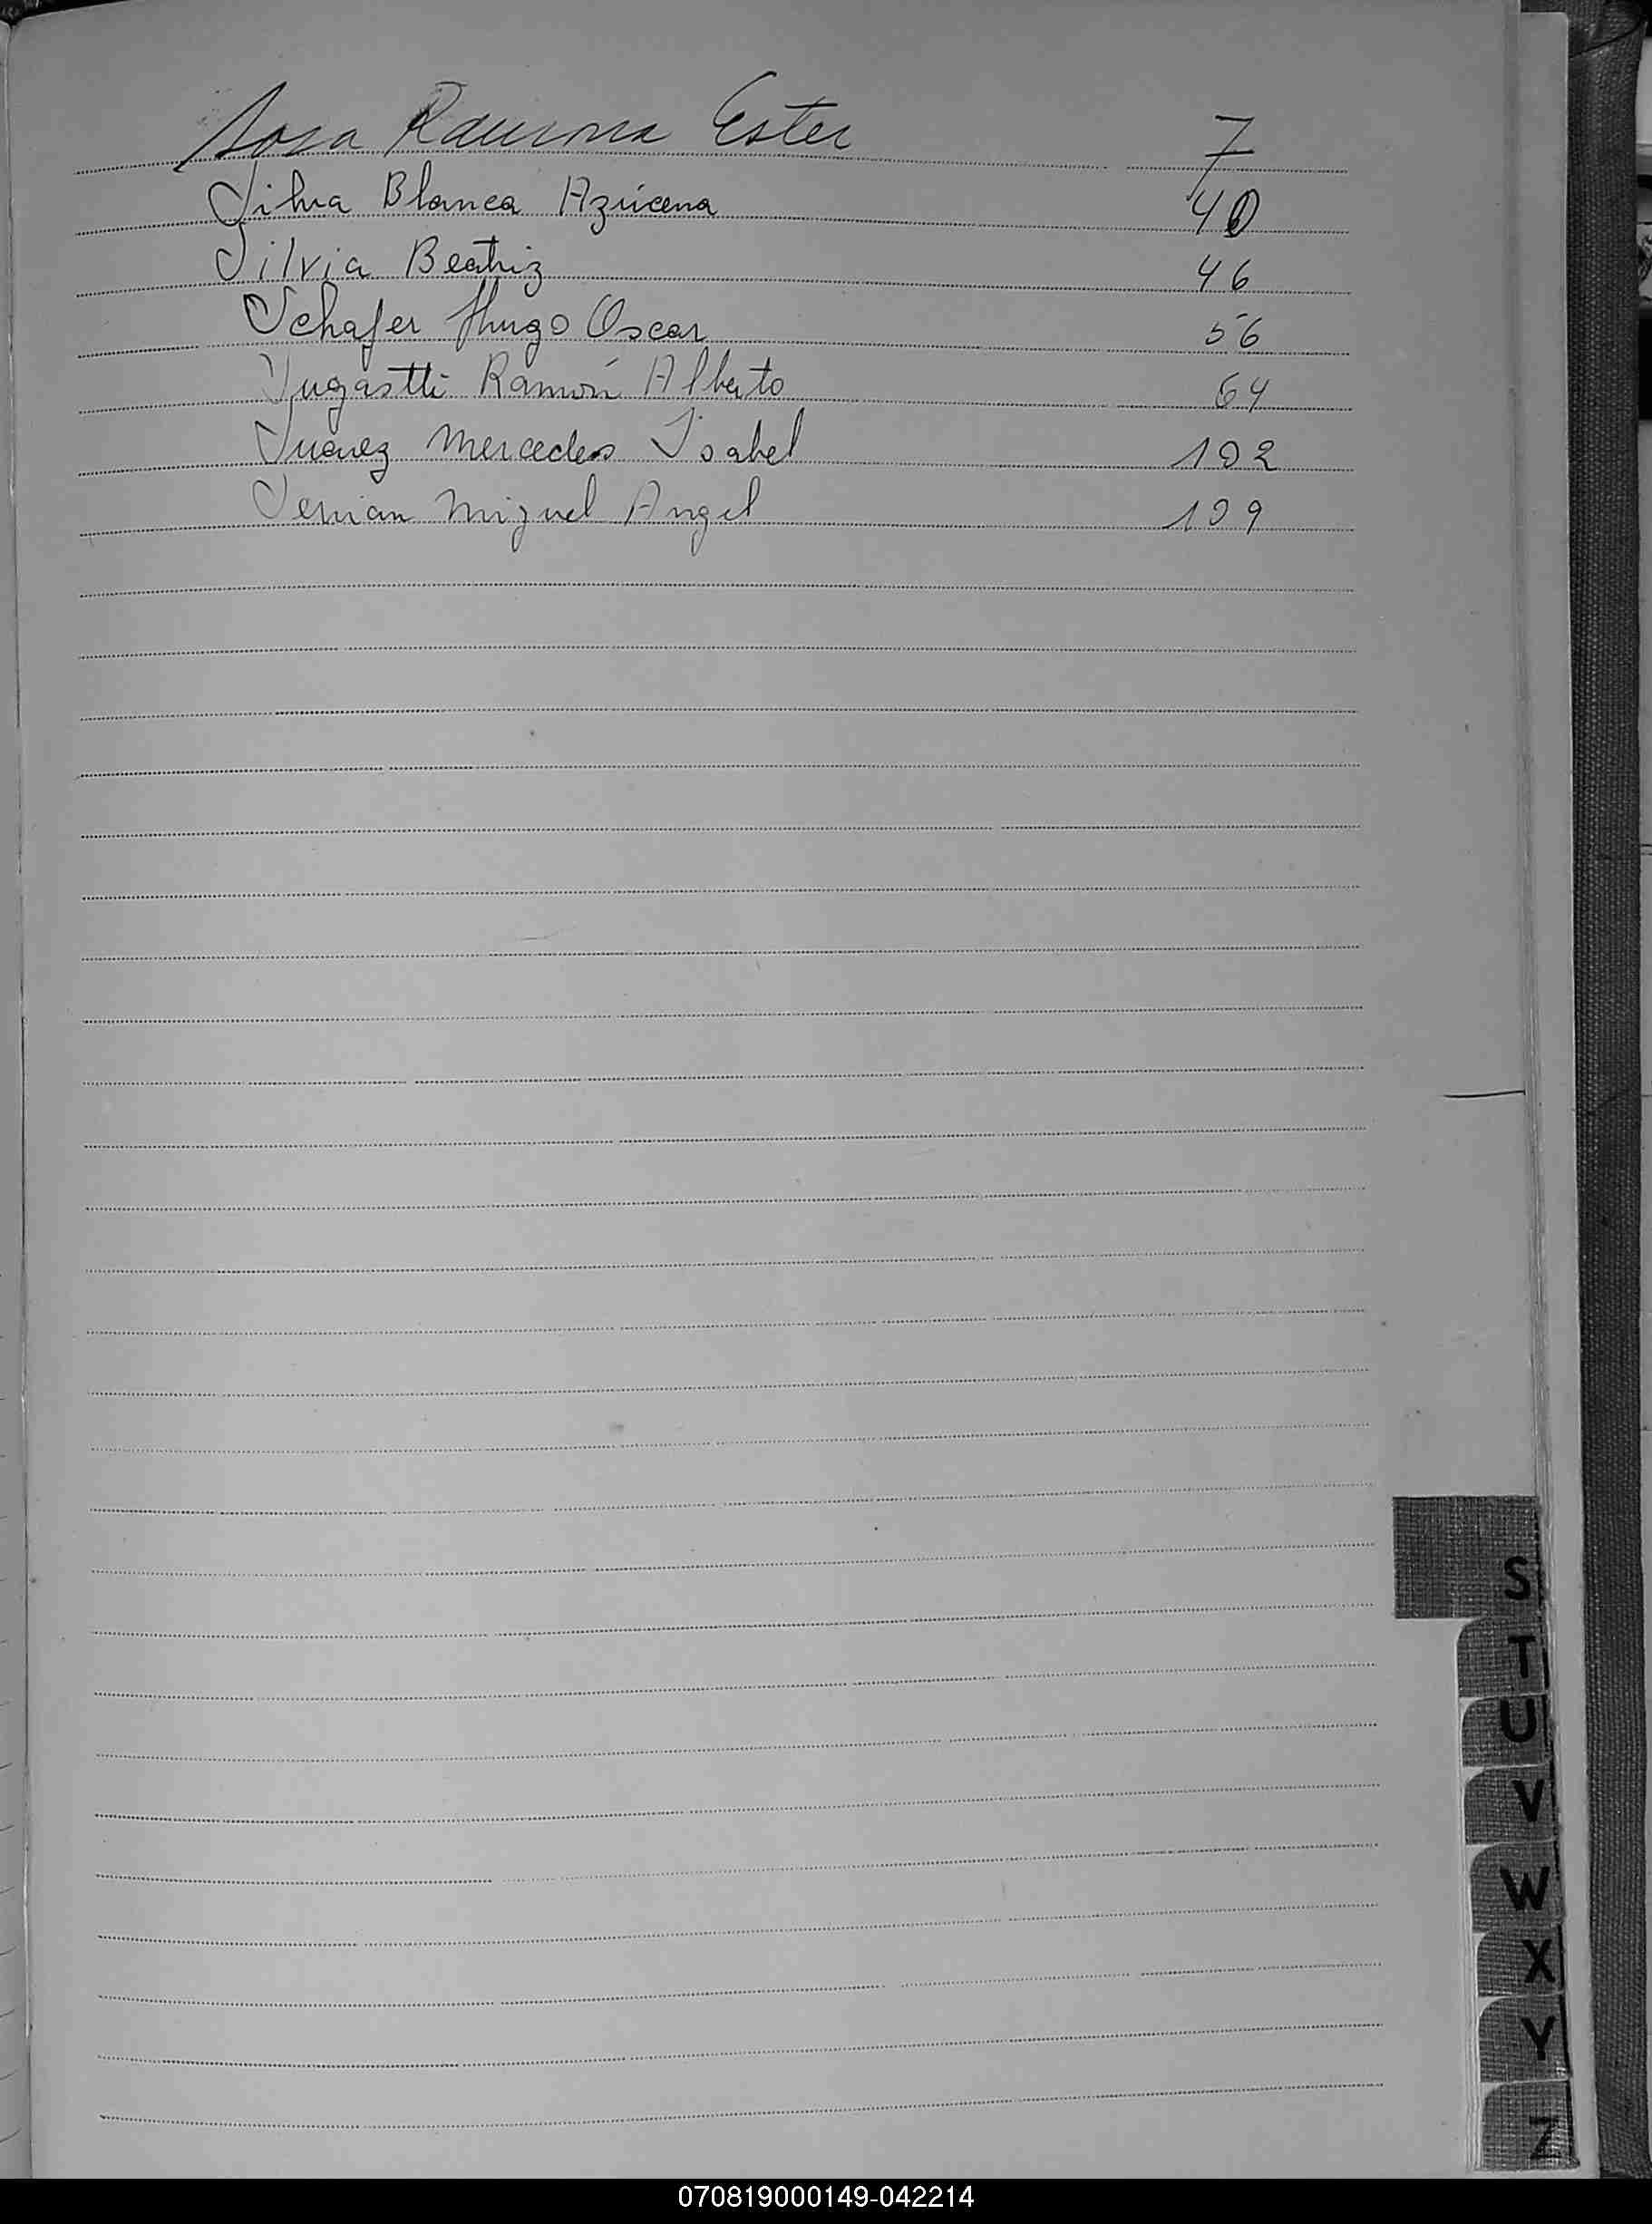 Sosa Ramona Ester 7
Silva Blanca Azucena 40
Silvia Beatriz 46
Schafer Hugo Oscar 56
Sugastti Ramón Alberto 64
Suarez Mercedes Isabel 102
Miguel Angel 109
S
T
U
V
W
X
Y
Z
070819000149-042214